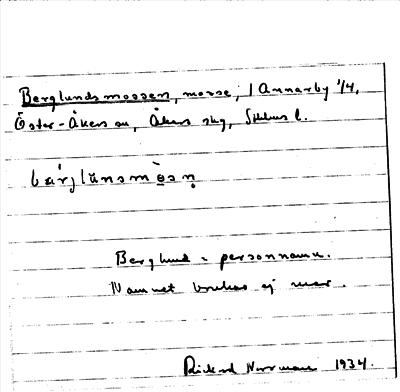 Berglundsmossen, mosse, i Annarby 1/4,
Öster-Åkers sn, Åkers skg, Sthlms l.
bærjlúnsmòsən
Berglund = personnamn.
Namnet brukas ej mer.
Rickard Norrman 1934.